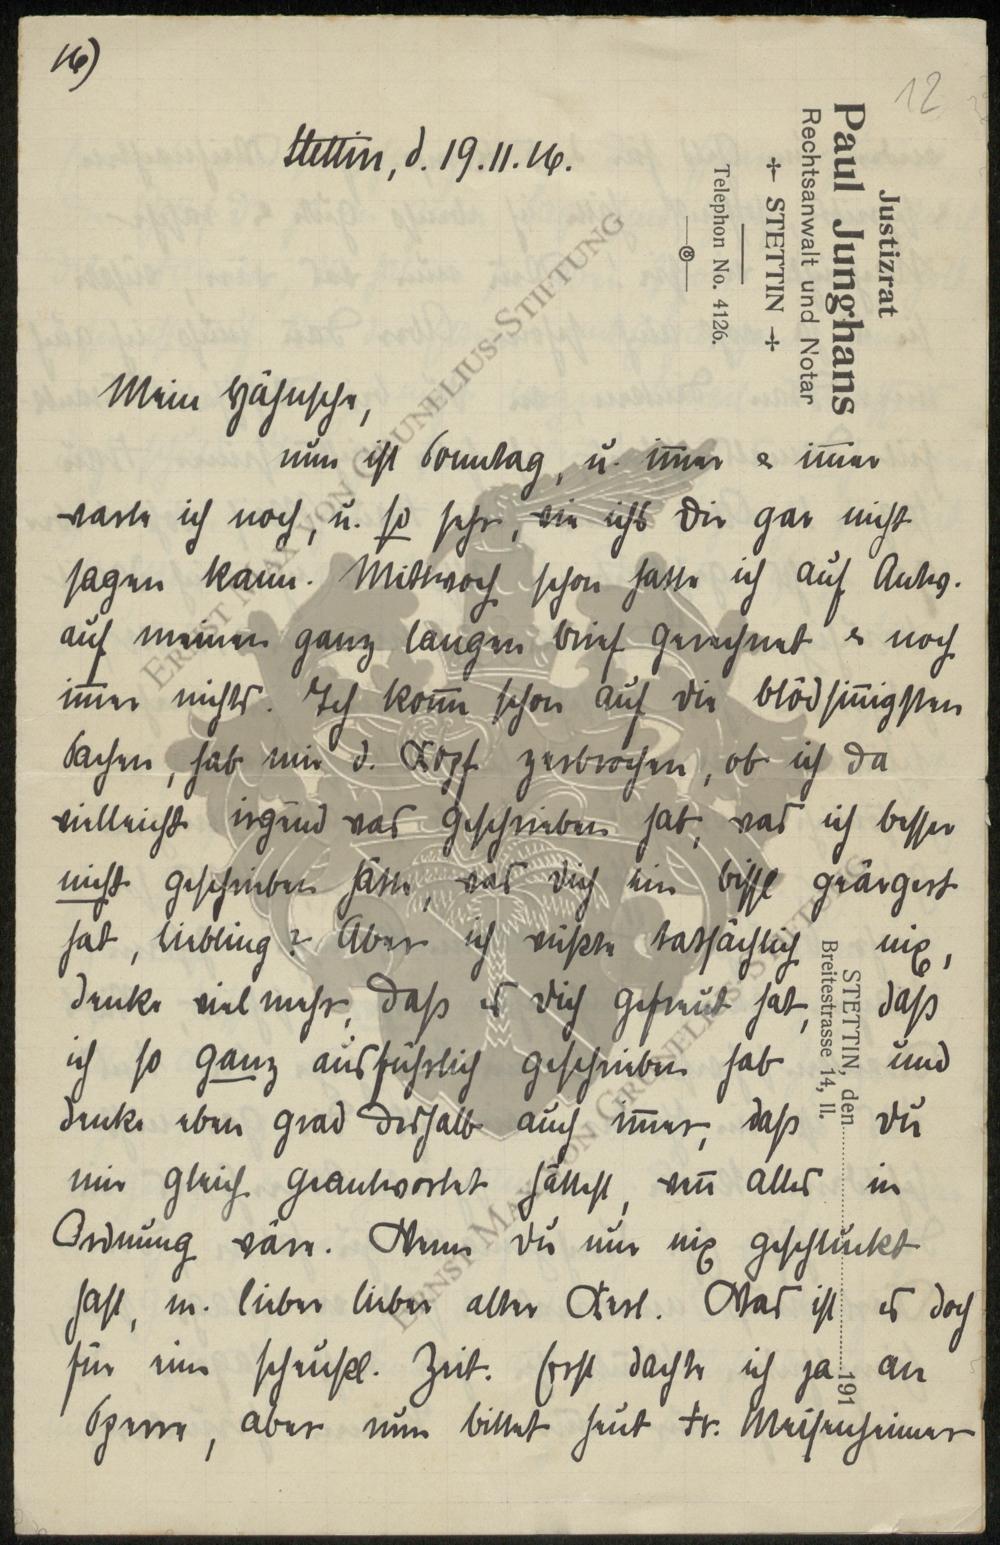 16)
12
Justizrat
Paul Junghans
Rechtsanwalt und Notar
STETTIN
Telephon No. 4126.
Stettin, d. 19.11.16.
Mein Hähnsche,
nun ist Sonntag, u. im̅er & im̅er
warte ich noch, u. so sehr, wie ichs Dir gar nicht
sagen kann. Mittwoch schon hatte ich auf Antw.
auf meinen ganz langen Brief gerechnet & noch
im̅er nichts. Ich kom̅e schon auf die blödsin̅igsten
Sachen, hab mir d. Kopf zerbrochen, ob ich da
vielleicht irgend was geschrieben hab, was ich besser
nicht geschrieben hätte, was Dich ein bissl geärgert
hat, Liebling? Aber ich wüßte tatsächlich nix,
denke vielmehr, daß es Dich gefreut hat, daß
ich so ganz ausführlich geschrieben hab und
denke eben grad deshalb auch im̅er, daß Du
mir gleich geantwortet hättest, wen̅ alles in
Ordnung wäre. Wenn Du nur nix geschluckt
hast, m. lieber lieber alter Kerl. Was ist es doch
für eine scheußl. Zeit. Erst dachte ich ja an
Sperre, aber nun bittet heut Fr. Meisenheimer
STETTIN, den 191
Breitestrasse 14, II.
ERNST MAX VON GRUNELIUS-STIFTUNG
ERNST MAX VON GRUNELIUS-STIFTUNG